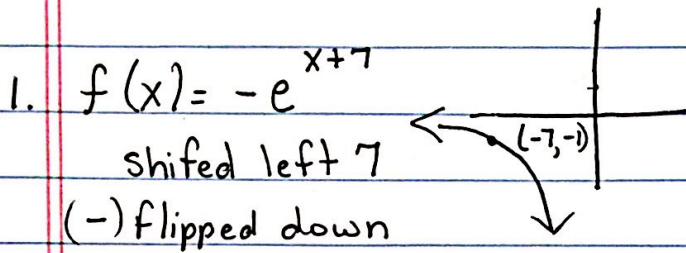 1. f(x) = -e^{x+7}
(-7,-1)
shifed left 7
(-) flipped down